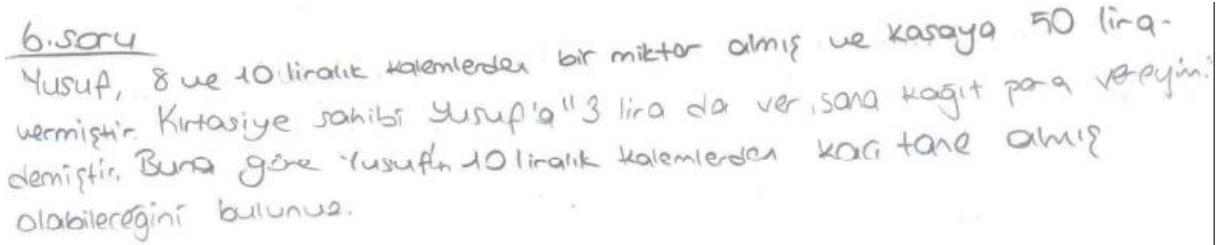 6.soru
Yusuf, 8 ve 10 liralık kalemlerden bir miktar almış ve kasaya 50 lira
vermiştir. Kırtasiye sahibi Yusuf'a "3 lira da ver, sana kağıt para vereyim."
demiştir. Buna göre Yusuf'n 10 liralık kalemlerden kaç tane almış
olabileceğini bulunuz.